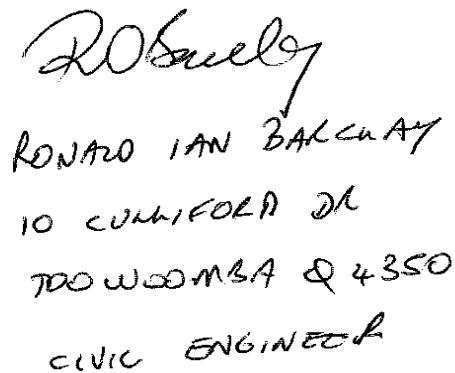 RONALD IAN BARCLAY
10 DR
TOOWOOMBA Q 4350
CIVIL ENGINEER